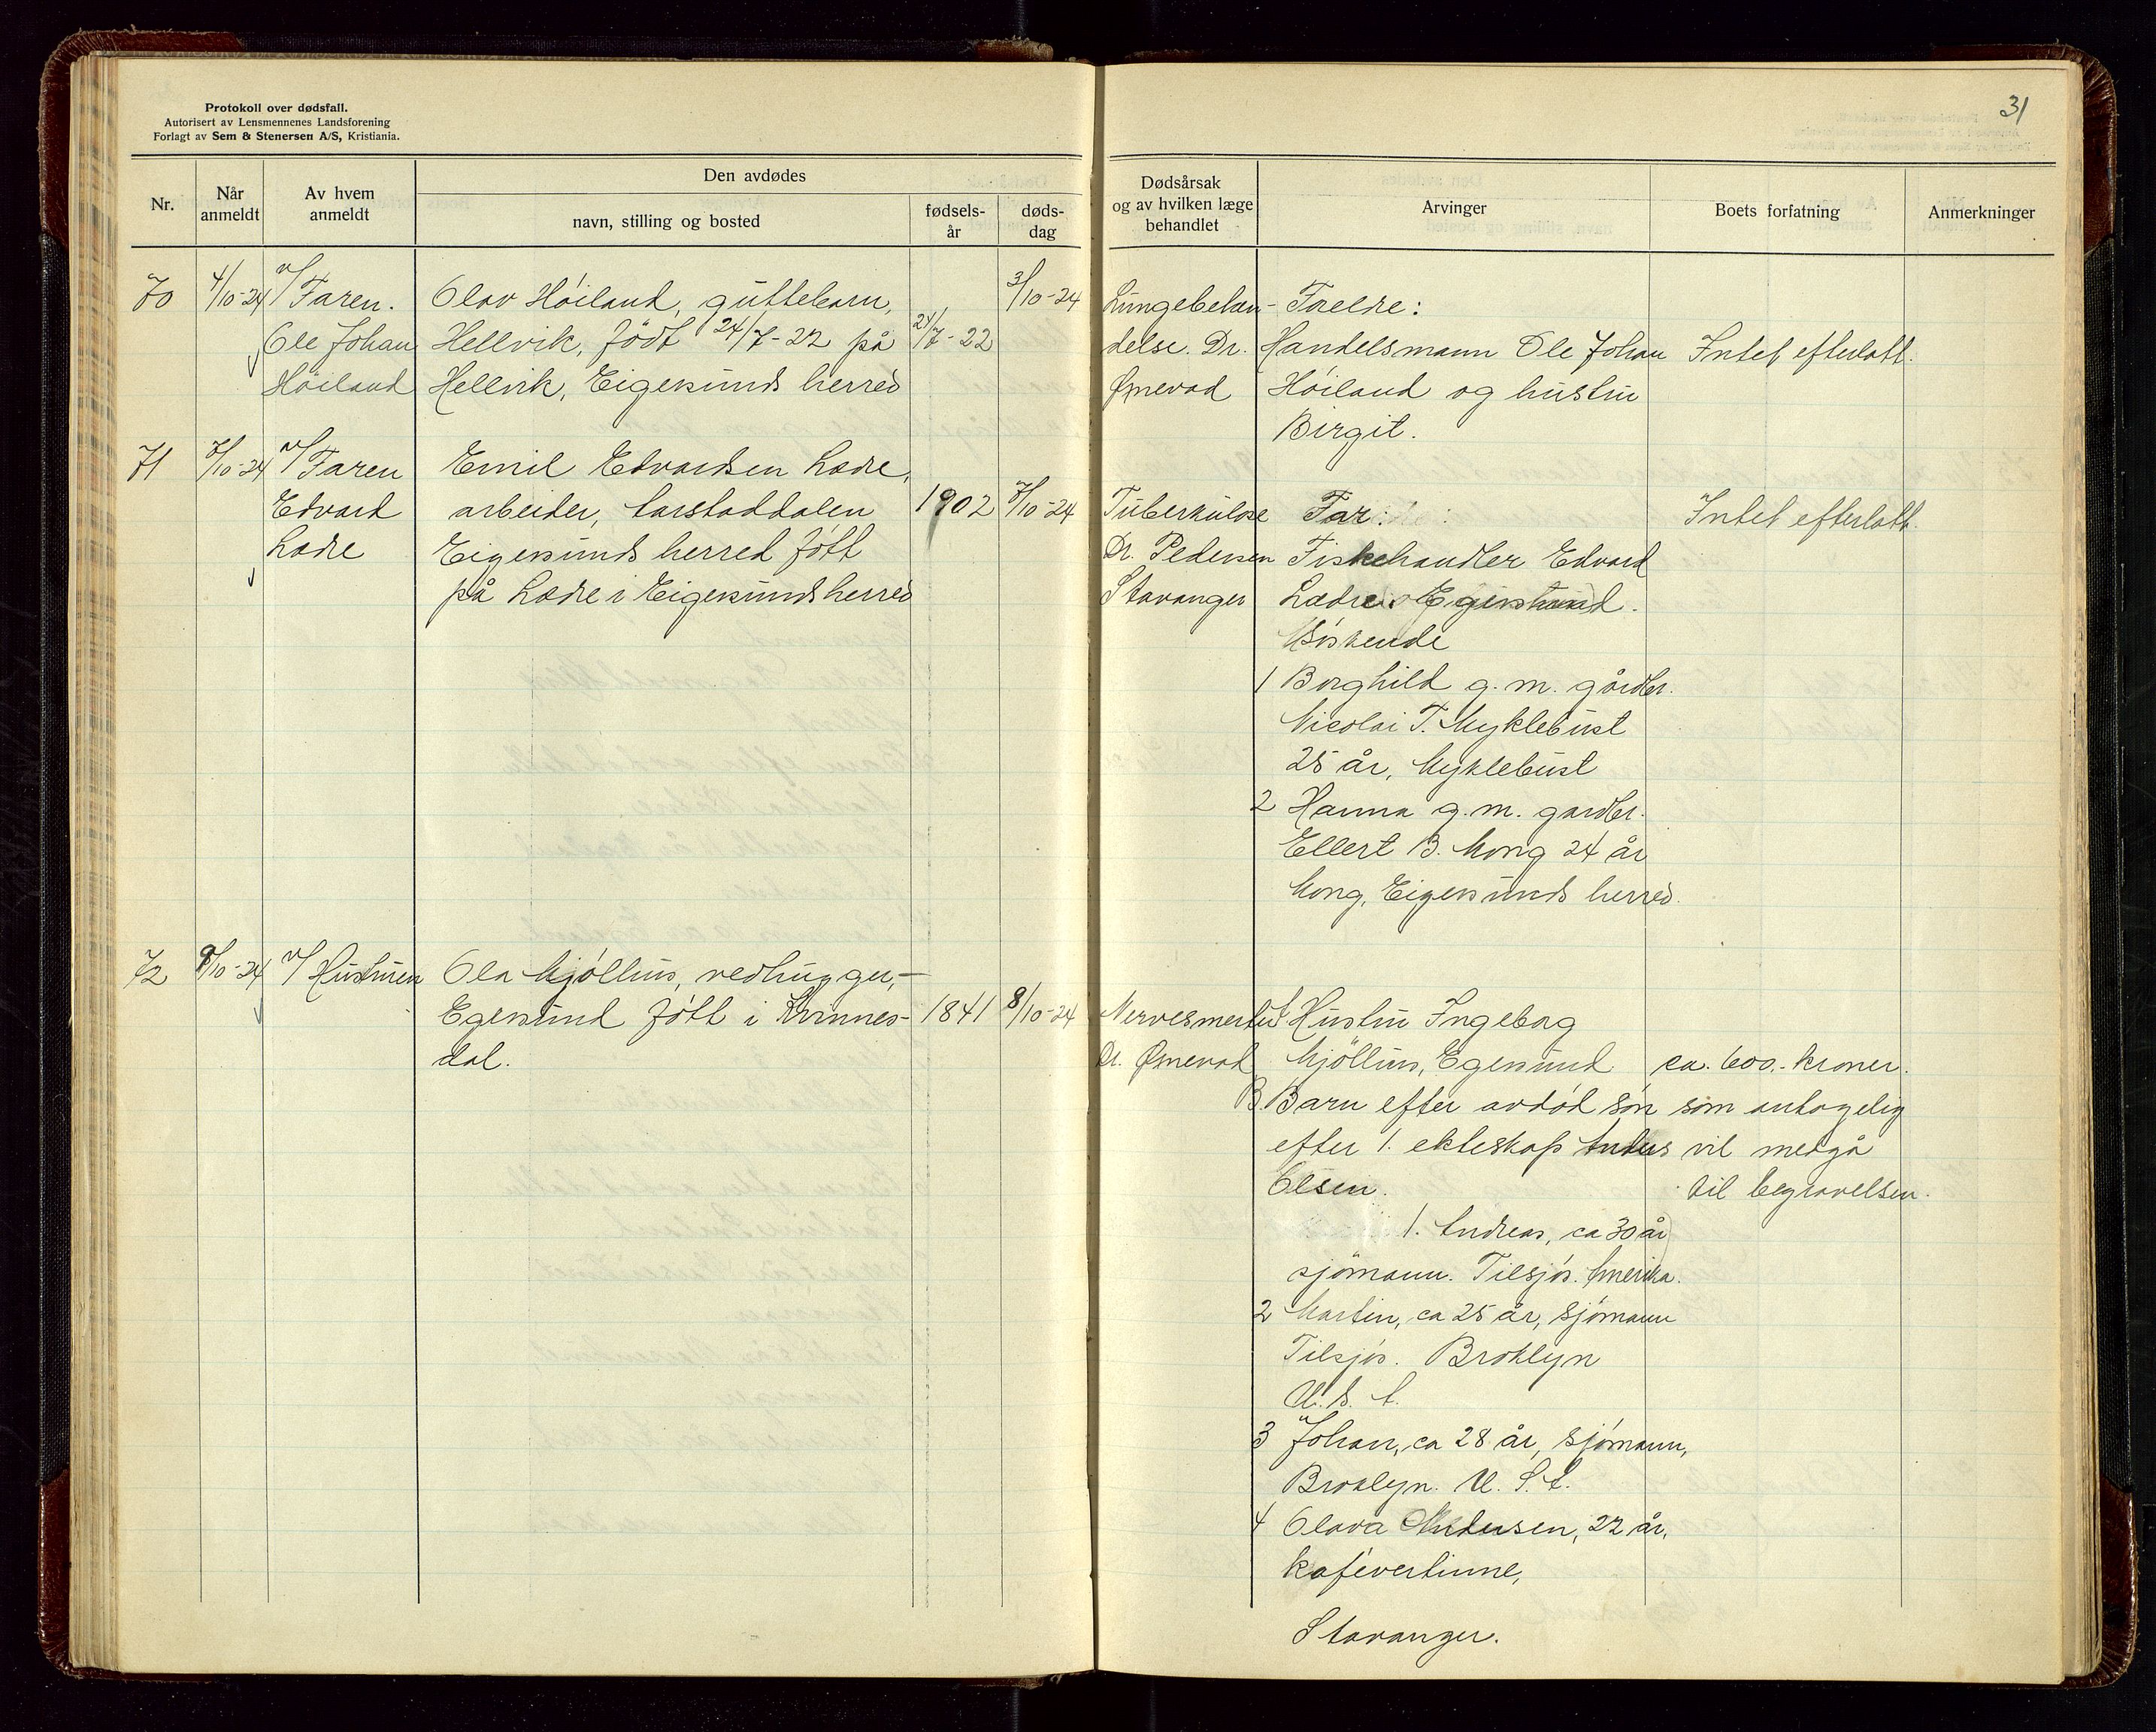 31
Protokoll over dødsfall.
Autorisert av Lensmennenes Landsforening
Forlagt av Sem & Stenersen A/S, Kristiania.
Nr.
Når anmeldt
Av hvem anmeldt
Den avdødes
navn, stilling og bosted
fødsels-år
døds-dag
Dødsårsak og av hvilken læge behandlet
Arvinger
Boets forfatning
Anmerkninger
70
4/10-24
v/ Faren.
Ole Johan
Höiland
Olav Höiland, guttebarn,
Hellvik, födt 24/7-22 på
Hellvik, Eigersunds herred
24/7-22
3/10-24
Lungebeten-
delse. Dr.
Ømevad
Foreldre:
Handelsmann Ole Johan
Höiland og hustru
Birgit.
Intet efterlatt.
71
7/10-24
v/ Faren
Edvard
Lædre
Emil Edvardsen Lædre,
arbeider, Aarstaddalen
Eigersunds herred fött
på Lædre i Eigersunds herred
1902
7/10-24
Tuberkulose
Dr. Pedersen
Stavanger
Far:
Fiskehandler Edvard
Lædre, Egersund.
Söskende
1 Borghild g.m. gårdbr.
Nicolai T. Myklebust
25 år, Myklebust
2 Hanna g.m. gardbr.
Ellert B. Mong 24 år
Mong, Eigersunds herred.
Intet efterlatt.
72
9/10-24
v/ Hustruen
Ola Mjöllus, vedhugger,-
Egersund fött i Kvinnes-
dal.
1841
8/10-24
Nervesmerter
Dr. Ømevad
A. Hustru Ingeborg
Mjöllus, Egersund
B Barn efter avdöd sön
efter 1. ekteskap Anders
Olsen.
1. Andreas, ca 30 år
sjömann. Tilsjös. Amerika.
2 Martin, ca 25 år, sjömann
Tilsjös. Broklyn
U.S.A.
3 Johan, ca 28 år, sjömann,
Broklyn. U.S.A.
4 Olava Andersen, 22 år,
kafévertinne,
Stavanger.
ca. 600.- kroner.
som antagelig
vil medgå
til begravelsen.